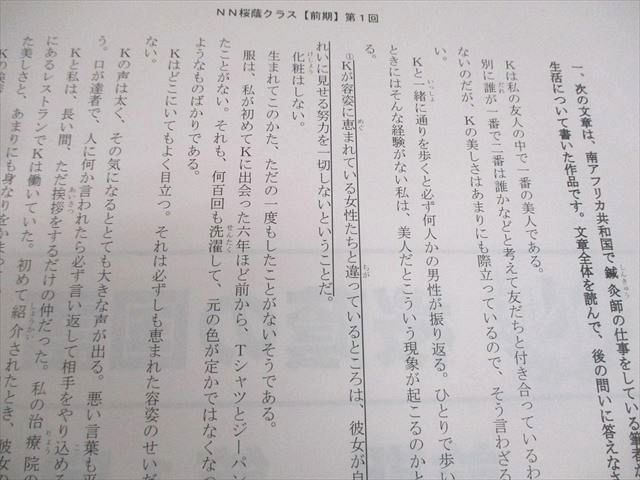 NN桜蔭クラス【前期】第1回
一、次の文章は、南アフリカ共和国で鍼灸師の仕事をしている筆者が
生活について書いた作品です。文章全体を読んで、後の問いに答えなさ
Kは私の友人の中で一番の美人である。
別に誰が一番で二番は誰かなどと考えて友だちと付き合っているわ
ないのだが、Kの美しさはあまりにも際立っているので、そう言わざる
い。
Kと一緒に通りを歩くと必ず何人かの男性が振り返る。ひとりで歩い
ときにはそんな経験がない私は、美人だとこういう現象が起こるのかと
る。
①Kが容姿に恵まれている女性たちと違っているところは、彼女が自
れいに見せる努力を一切しないということだ。
化粧はしない。
生まれてこのかた、ただの一度もしたことがないそうである。
服は、私が初めてKに出会った六年ほど前から、Tシャツとジーパン
たことがない。それも、何百回も洗濯して、元の色が定かではなくなっ
ようなものばかりである。
Kはどこにいてもよく目立つ。それは必ずしも恵まれた容姿のせいだ
ない。
Kの声は太く、その気になるととても大きな声が出る。悪い言葉も平
う。口が達者で、人に何か言われたら必ず言い返して相手をやり込める
Kと私は、長い間、ただ挨拶をするだけの仲だった。私の治療院の
にあるレストランでKは働いていた。初めて紹介されたとき、彼女の
た美しさと、あまりにも身なりをかまっ